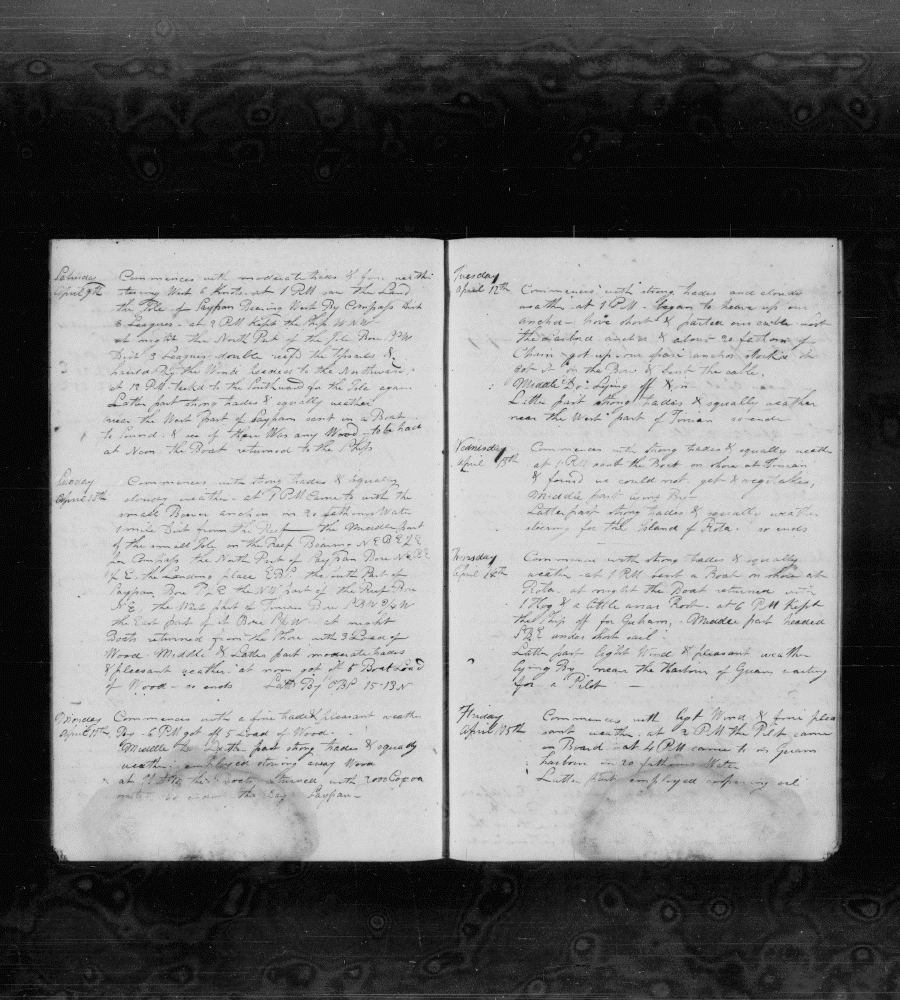 Saturday Commences with moderate trades & fine weather
April 9th stering West 6 Knots at 1 PM saw the Land
the Isle of Saypan Bearing West By Compass Dist
8 Leagues - at 2 PM Kept the Ship WNW
at night the North Part of the Isle Bore
Dist 3 Leagues double reef'd the Topsails &
hauld By the Wind headed to the Northward
at 12 PM tack'd to the Southward for the Isle again
Latter part strong trades & squally weather
near the West Part of Saypan sent in a Boat
to Sound & see if there Was any Wood to be had
at Noon the Boat returned to the Ship
Sunday Commences with strong trades & squally
April 10th cloudy weather - at 1 PM Came to with the
small Bower anchor in 20 fathoms Water
1 mile Dist from the Reef - the Middle Part
of the small Isle on the Reef Bearing
per Compass the North Part of Saypan Bore
the Landing place the South Part of
Saypan Bore the NW part of the Reef Bore
the West part of Tinian Bore
the East part of it Bore at night
Boats returned from the Shore with 3 Load of
Wood - Middle & Latter part moderate trades
& pleasant weather at noon got off 5 Boat Load
of Wood - so ends Latt By OBS 15-13 N
Monday Commences with a fine trade & pleasant weather
April 11th 6 PM got off 5 Load of Wood -
Middle & Latter part strong trades & squally
weather employed stowing away Wood
at returned with 2000 Cocoa
nuts so ends this Day Saypan -
Tuesday
April 12th Commences with strong trades and cloudy
weather at 1 PM - began to heave up our
anchor - hove short & parted our cable - lost
the anchor & about 20 fathoms of
Chain - got up our spare anchor stocked it
got it on the Bow & bent the cable.
Middle Do Lying off & in
Latter part strong trades & squally weather
near the West part of Tinian so ends
Wednesday Commences with strong trades & squally weather
April 13th at 1 PM sent the Boat on shore at Tinian
& found we could not get & vegetables,
Middle part lying By
Latter part strong trades & squally weather
stering for the Island of Rota. so ends
Thursday Commences with strong trades & squally
April 14th weather - at 1 PM sent a Boat on shore at
Rota, at night the Boat returned with
1 Hog & a little Root - at 6 PM Kept
the Ship off for Guham, - Middle part headed
SBE under short sail -
Latter part light Wind & pleasant weather
lying By near the Harbour of Guam waiting
for a Pilot -
Friday Commences with light Wind & fine plea
April 15th sant weather - at 2 PM the Pilot came
on Board - at 4 PM came to in Guam
harbour in 20 fathoms Water
Latter part employed coopering oil